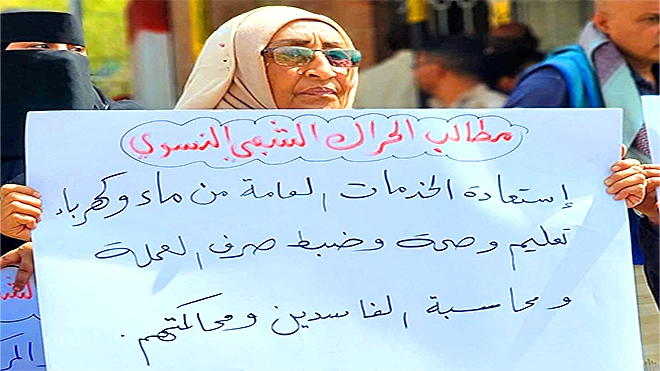 مطالب الحراك الشعبي النسوي
إستعادة الخدمات العامة من ماء وكهرباء
تعليم وصحة وضبط صرف العملة
ومحاسبة الفاسدين ومحاكمتهم.